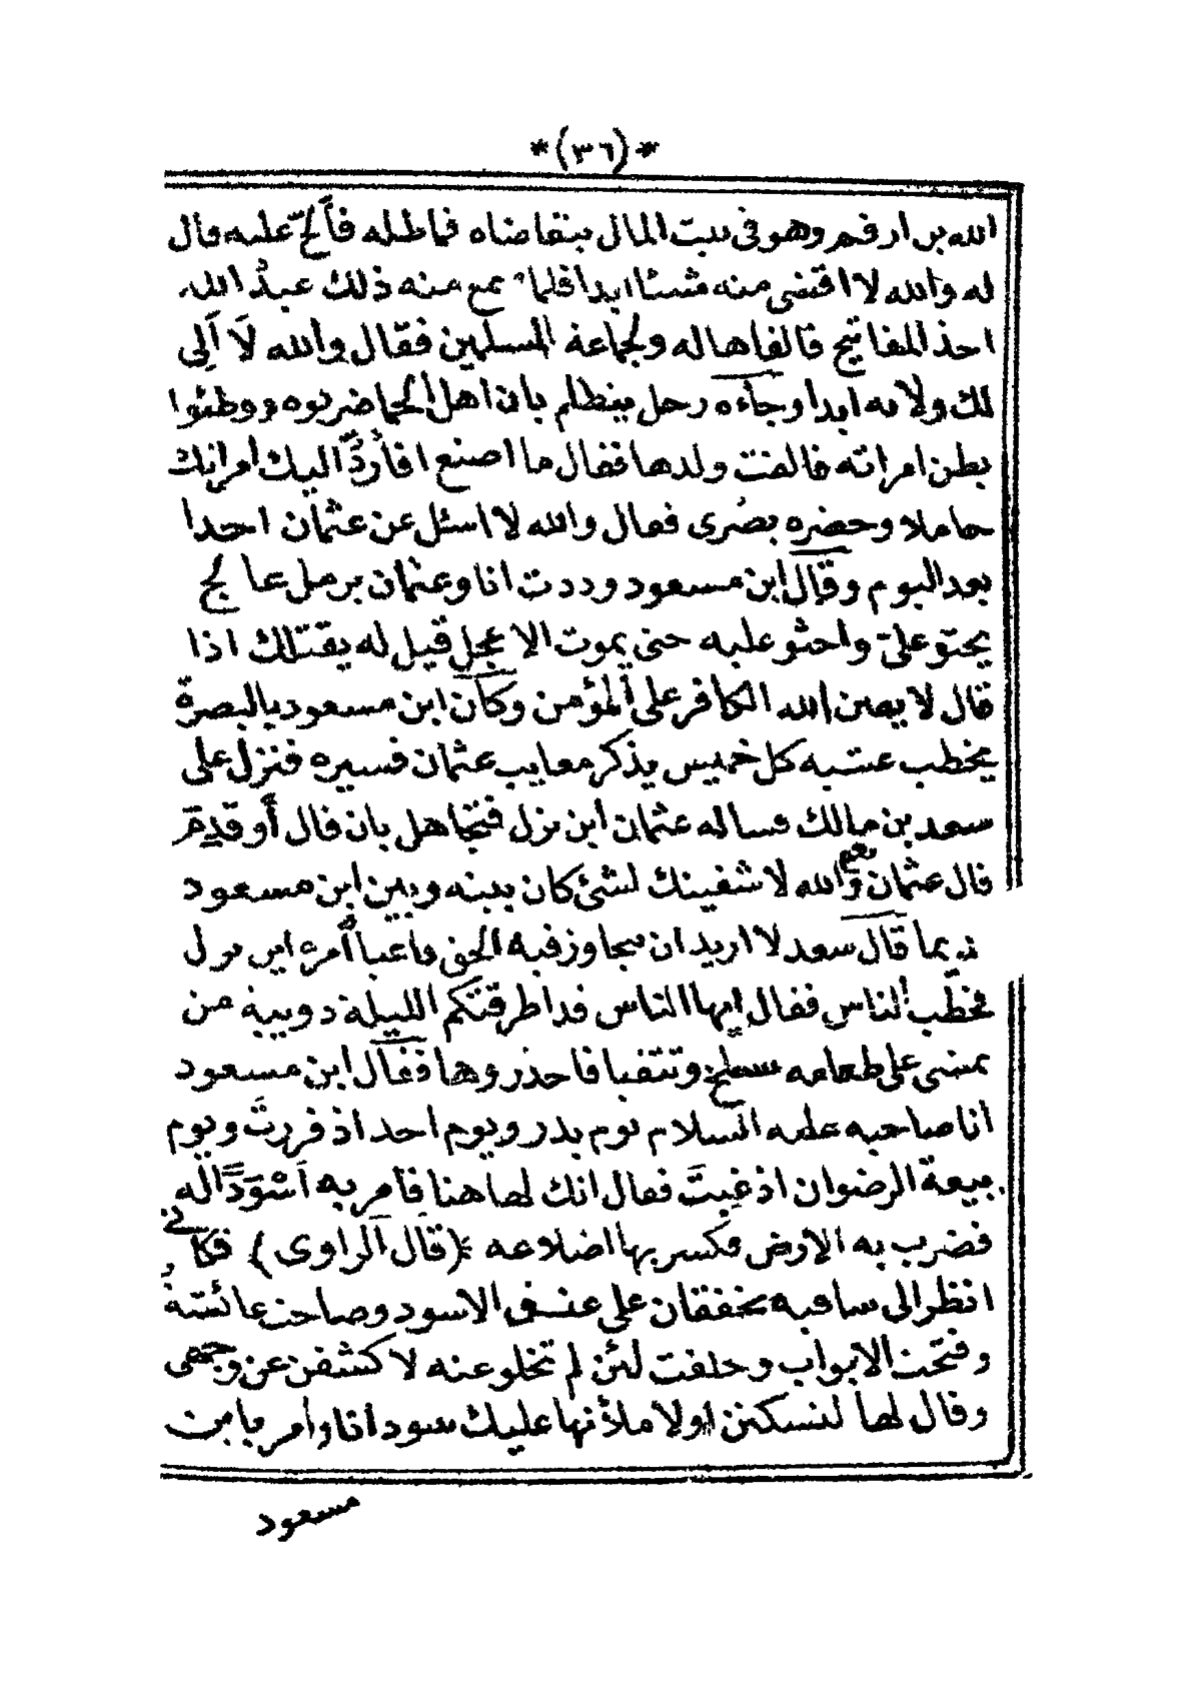 *(٣٦)*
الله بن ارقم وهو فى بيت المال يتقاضاه فماطله فأَلحّ عليه وقال
له والله لا اقتضى منه شيئا ابدا فلما سمع منه ذلك عبدُ الله
اخذ المفاتيح فالقاها له ولجماعة المسلمين فقال والله لَا أَلِى
لك ولا به ابدا وجاءه رجل يتظلم بان اهل الحما ضربوه ووطئوا
بطن امراته فالقت ولدها فقال ما اصنع افأَرُدُّ اليك امراتك
حاملا وحضره بصُرى فقال والله لا اسئل عن عثمان احدا
بعد اليوم وقال ابن مسعود وددت انا وعثمان برمل عالج
يحثو علىّ واحثو عليه حتى يموت الاعجل قيل له يقتلك اذا
قال لا يعين الله الكافر على المؤمن وكان ابن مسعود بالبصرة
يخطب عتبه كل خميس يذكر معايب عثمان فسيره فنزل على
سعد بن مالك فساله عثمان اين نزل فتجاهل بان قال أَو قدِمَ
قال عثمان نعم والله لاشفينك لشئ كان بينه وبين ابن مسعود
بما قال سعد لا اريد ان يجاوز فيه الحق
فخطب الناس فقال ايها الناس قد اطرقتكم الليلة دويبة من
يمشى على طعامه سلح وتتقيا فاحذروها فقال ابن مسعود
انا صاحبه عليه السلام يوم بدر ويوم احد اذ فررتَ ويوم
بيعة الرضوان اذ غِبتَ فقال انك لهاهنا فأمر به أَسْوَدًا له
فضرب به الارض فكسر بها اضلاعه (قال الراوى) فكانى
انظر الى ساقيه يخفقان على عنق الاسود وصاحت عائشة
وفتحت الابواب وحلفت لئن لم تخلو عنه لاكشفن عن وجهى
وقال لها لتسكتن اولاملأنها عليك سودانا وامر بابن
مسعود